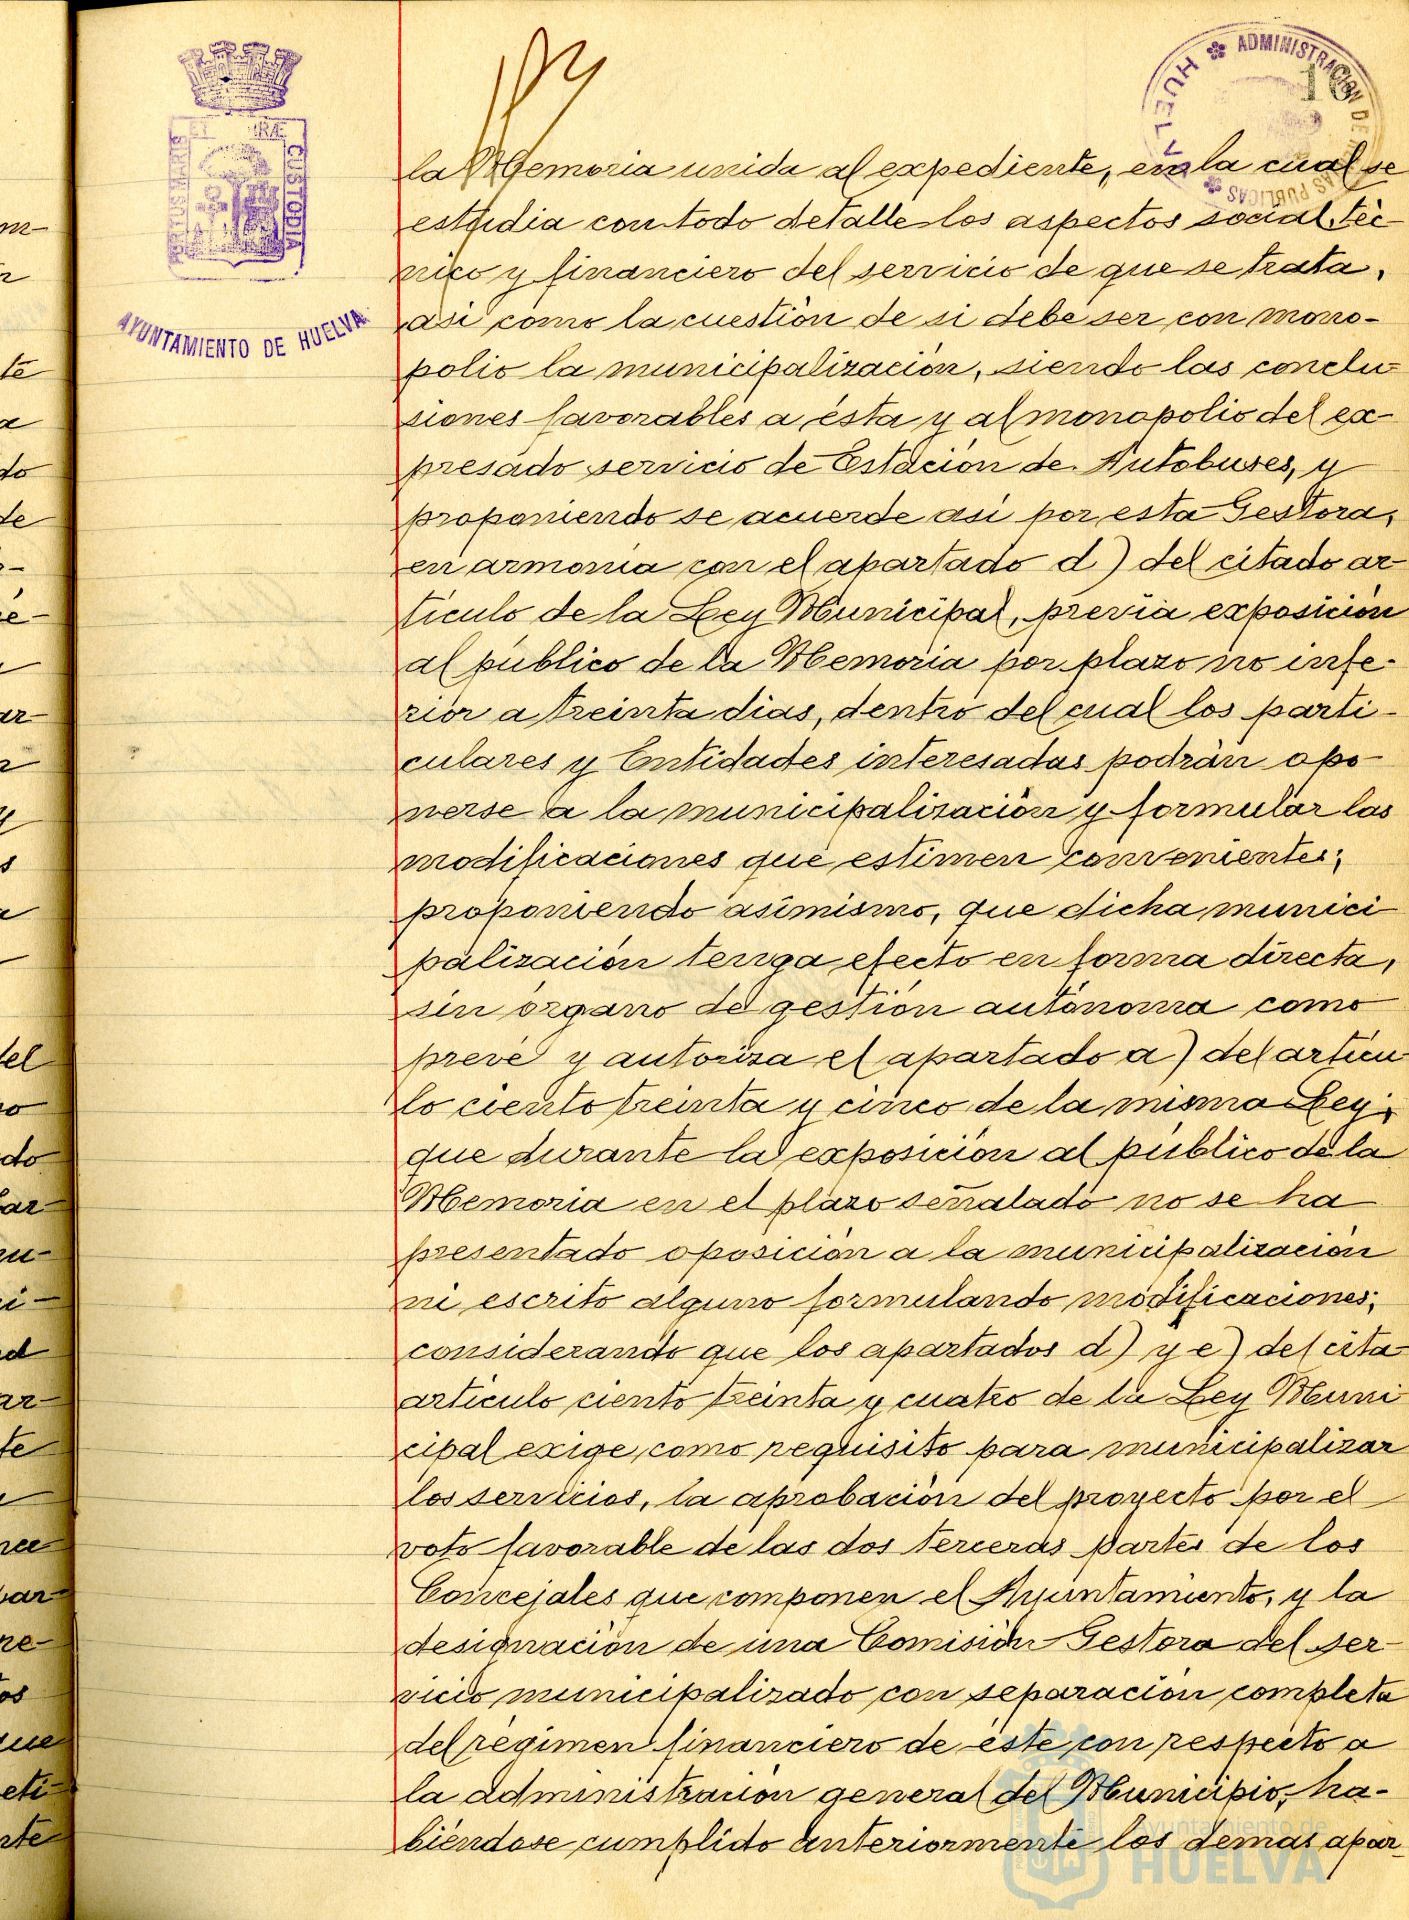 ADMINISTRACION DE
PUBLICAS
HUELVA
16
ET
PORTUS MARIS
CUSTODIA
AYUNTAMIENTO DE HUELVA
la Memoria unida al expediente, en la cual se
estudia con todo detalle los aspectos social, téc-
nico y financiero del servicio de que se trata,
así como la cuestión de si debe ser con mono-
polio la municipalización, siendo las conclu-
siones favorables a ésta y al monopolio del ex-
presado servicio de Estación de Autobuses, y
proponiendo se acuerde así por esta Gestora,
en armonía con el apartado d) del citado ar-
tículo de la Ley Municipal, previa exposición
al público de la Memoria por plazo no infe-
rior a treinta dias, dentro del cual los parti-
culares y Entidades interesadas podrán opo-
nerse a la municipalización y formular las
modificaciones que estimen convenientes;
proponiendo asímismo, que dicha munici
palización tenga efecto en forma directa,
sin órgano de gestión autónoma como
prevé y autoriza el apartado a) del artícu
lo ciento treinta y cinco de la misma Ley;
que durante la exposición al público de la
Memoria en el plazo señalado no se ha
presentado oposición a la municipalización
ni escrito alguno formulando modificaciones;
considerando que los apartados d) y e) del cita
artículo ciento treinta y cuatro de la Ley Muni
cipal exige como requisito para municipalizar
los servicios, la aprobación del proyecto por el
voto favorable de las dos terceras partes de los
Concejales que componen el Ayuntamiento, y la
designación de una Comisión Gestora del ser-
vicio municipalizado con separación completa
del régimen financiero de éste con respecto a
la administración general del Municipio, ha-
biéndose cumplido anteriormente los demás apar-
Ayuntamiento de
HUELVA